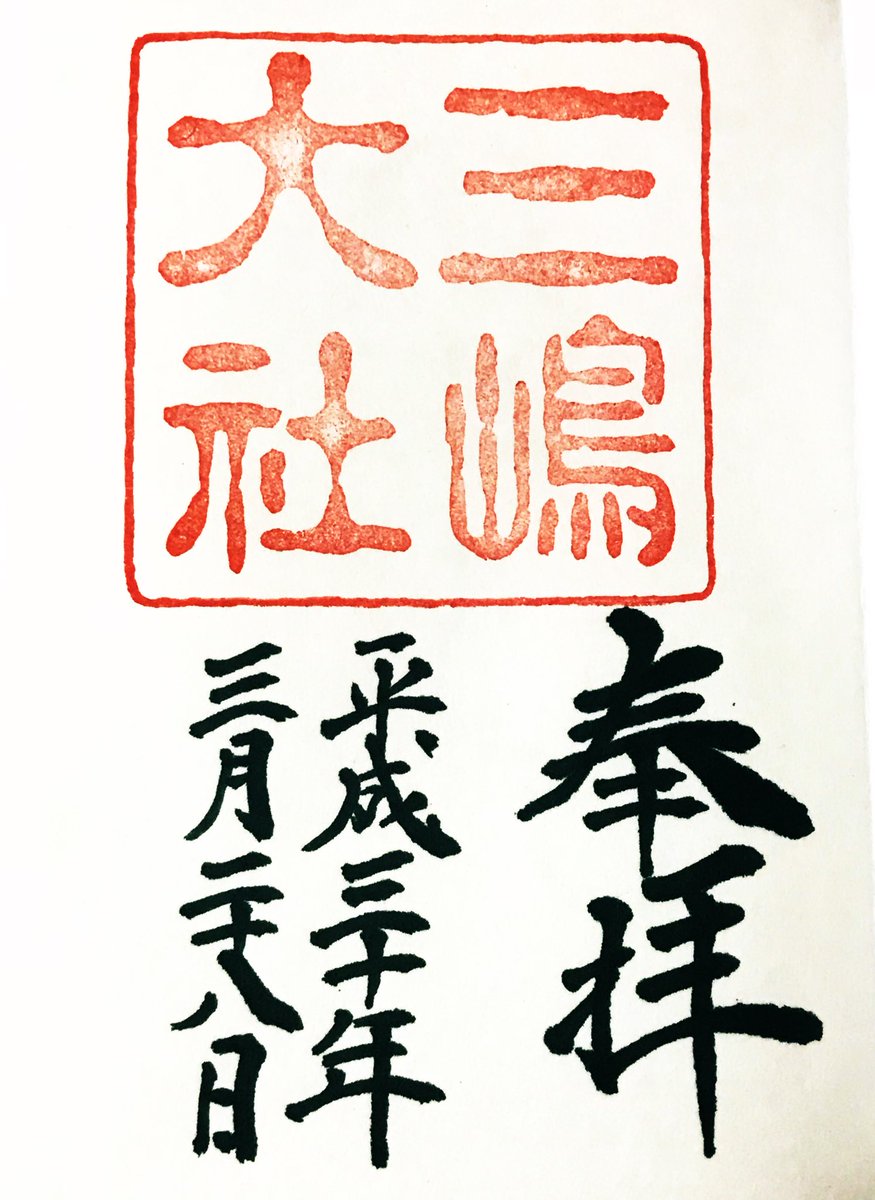 三嶋
大社
奉拝
平成三十年
三月二十八日